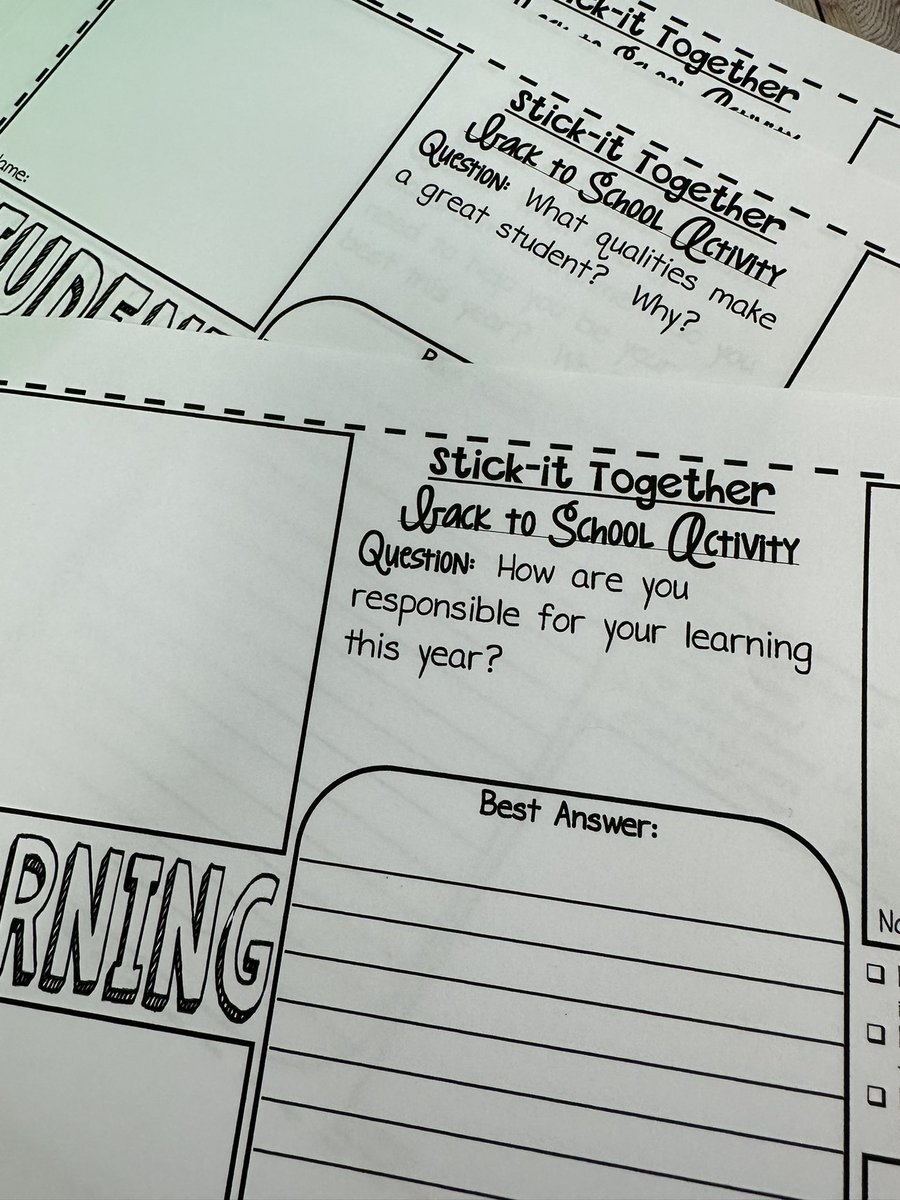 Stick-it Together
Stick-it Together
Back to School Activity
Question: What qualities make
a great student? Why?
Name:
Stick-it Together
Back to School Activity
Question: How are you
responsible for your learning
this year?
Best Answer:
RNING